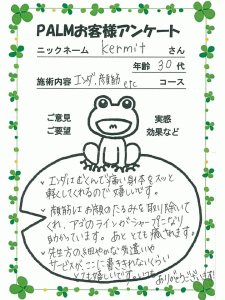 PALMお客様アンケート
ニックネーム kermit さん
年齢 30 代
施術内容 エンダ、顔筋 etc コース
ご意見
ご要望
実感
効果など
・エンダはむくんで痛い身体をスッと
軽くしてくれるので嬉しいです。
・顔筋はお顔のたるみを取り除いて
くれ、アゴのラインがシャープになり
助かっています。あと とても癒されます。
・先生方の細やかな気遣いや
サービスがここに書ききれないくらい
とても嬉しいです。いつも
ありがとうございます!